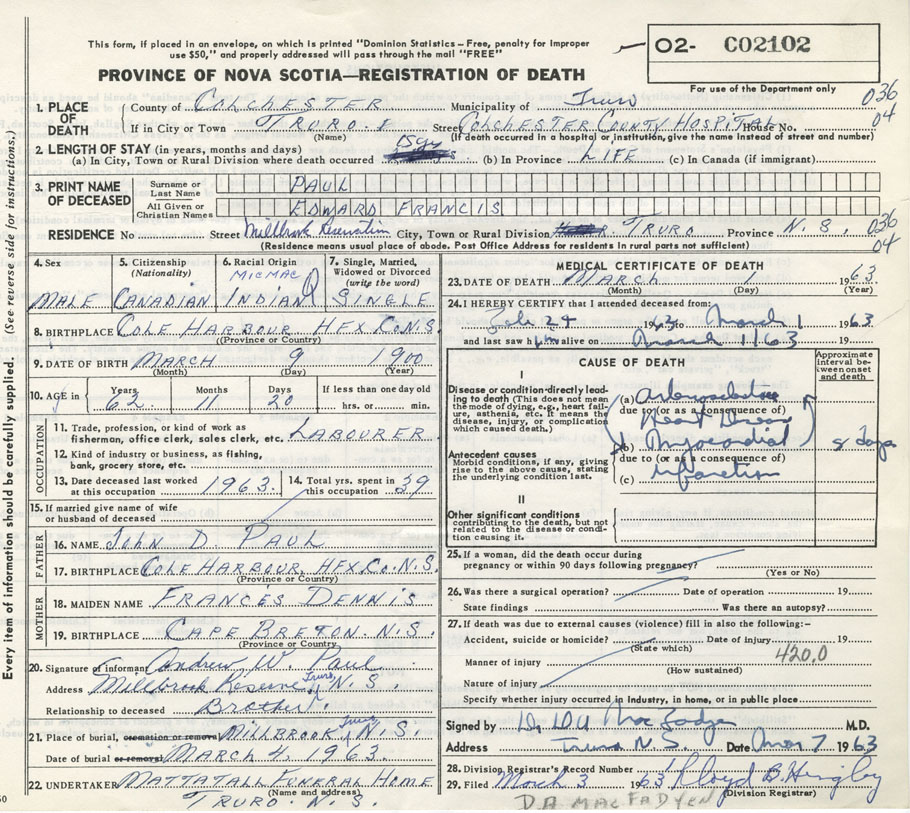 This form, if placed in an envelope, on which is printed "Dominion Statistics – Free, penalty for improper
use $50," and properly addressed will pass through the mail "FREE"
PROVINCE OF NOVA SCOTIA—REGISTRATION OF DEATH
02- C02102
For use of the Department only
036
04
1. PLACE OF DEATH
County of COLCHESTER Municipality of Truro
If in City or Town TRURO Street COLCHESTER COUNTY HOSPITAL House No.
(Name) (If death occurred in a hospital or institution, give the name instead of street and number)
2. LENGTH OF STAY (in years, months and days)
(a) In City, Town or Rural Division where death occurred (b) In Province LIFE (c) In Canada (if immigrant)
3. PRINT NAME OF DECEASED
Surname or Last Name PAUL
All Given or Christian Names EDWARD FRANCIS
RESIDENCE No Street Millbrook Reservation City, Town or Rural Division TRURO Province N.S.
036
04
(Residence means usual place of abode. Post Office Address for residents in rural parts not sufficient)
4. Sex MALE
5. Citizenship (Nationality) CANADIAN
6. Racial Origin MICMAC INDIAN
7. Single, Married, Widowed or Divorced (write the word) SINGLE
8. BIRTHPLACE COLE HARBOUR HFX CO. N.S.
(Province or Country)
9. DATE OF BIRTH MARCH 9 1900
(Month) (Day) (Year)
10. AGE in Years 62 Months 11 Days 20 If less than one day old hrs. or min.
OCCUPATION
11. Trade, profession, or kind of work as fisherman, office clerk, sales clerk, etc. LABOURER
12. Kind of industry or business, as fishing, bank, grocery store, etc.
13. Date deceased last worked at this occupation 1963. 14. Total yrs. spent in this occupation 39
15. If married give name of wife or husband of deceased
FATHER
16. NAME John D. PAUL
17. BIRTHPLACE COLE HARBOUR, HFX. Co. N.S.
(Province or Country)
MOTHER
18. MAIDEN NAME FRANCES DENNIS
19. BIRTHPLACE CAPE BRETON N.S.
(Province or Country)
20. Signature of informant Andrew W. Paul
Address Millbrook Reserve Truro, N.S.
Relationship to deceased Brother
21. Place of burial, cremation or removal MILLBROOK, Truro N.S.
Date of burial or removal MARCH 4, 1963.
22. UNDERTAKER MATTATALL FUNERAL HOME
(Name and address)
TRURO. N.S.
MEDICAL CERTIFICATE OF DEATH
23. DATE OF DEATH MARCH 1 1963
(Month) (Day) (Year)
24. I HEREBY CERTIFY that I attended deceased from:
24 1963 to March 1 1963
and last saw him alive on March 1/63 19
CAUSE OF DEATH
Approximate interval between onset and death
I
Disease or condition directly leading to death (This does not mean the mode of dying, e.g., heart failure, asthenia, etc. It means the disease, injury, or complication which caused death.)
(a) Arteriosclerotic
due to (or as a consequence of)
Heart Disease
(b) Myocardial
due to (or as a consequence of)
(c) infarction
Antecedent causes
Morbid conditions, if any, giving rise to the above cause, stating the underlying condition last.
8 days
II
Other significant conditions contributing to the death, but not related to the disease or condition causing it.
25. If a woman, did the death occur during pregnancy or within 90 days following pregnancy?
(Yes or No)
26. Was there a surgical operation? Date of operation 19
State findings Was there an autopsy?
27. If death was due to external causes (violence) fill in also the following:–
Accident, suicide or homicide? Date of injury 19
(State which)
420.0
Manner of injury
(How sustained)
Nature of injury
Specify whether injury occurred in industry, in home, or in public place
Signed by M.D.
Address Truro N.S. Date Mar 7 1963
28. Division Registrar's Record Number
29. Filed March 3 1963
(Division Registrar)
D.A. MACFADYEN
Every item of information should be carefully supplied. (See reverse side for instructions.)